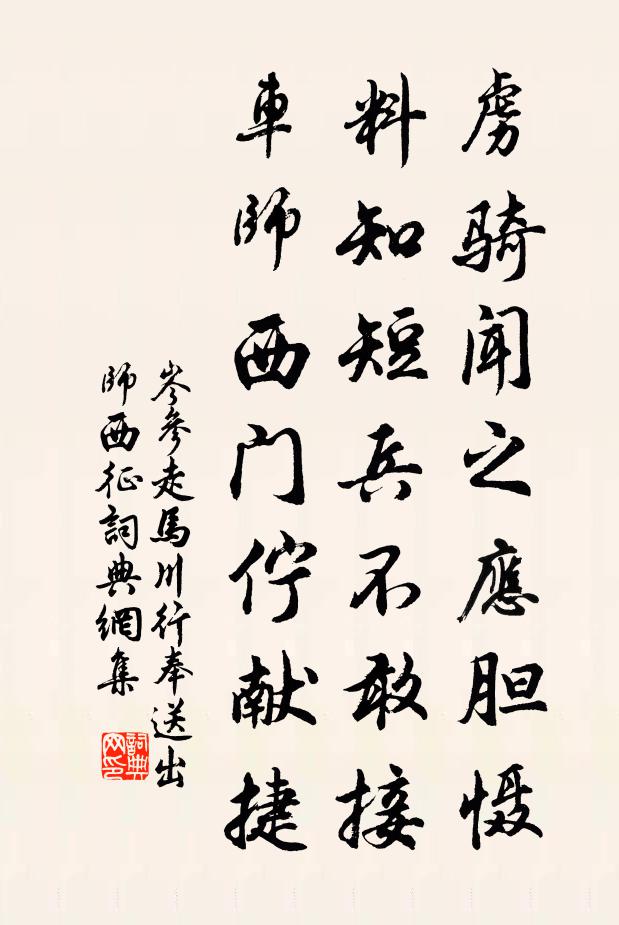 虜騎聞之應胆慑
料知短兵不敢接
車師西门佇献捷
岑參走馬川行奉送出
師西征詞典網集
詞典
网印